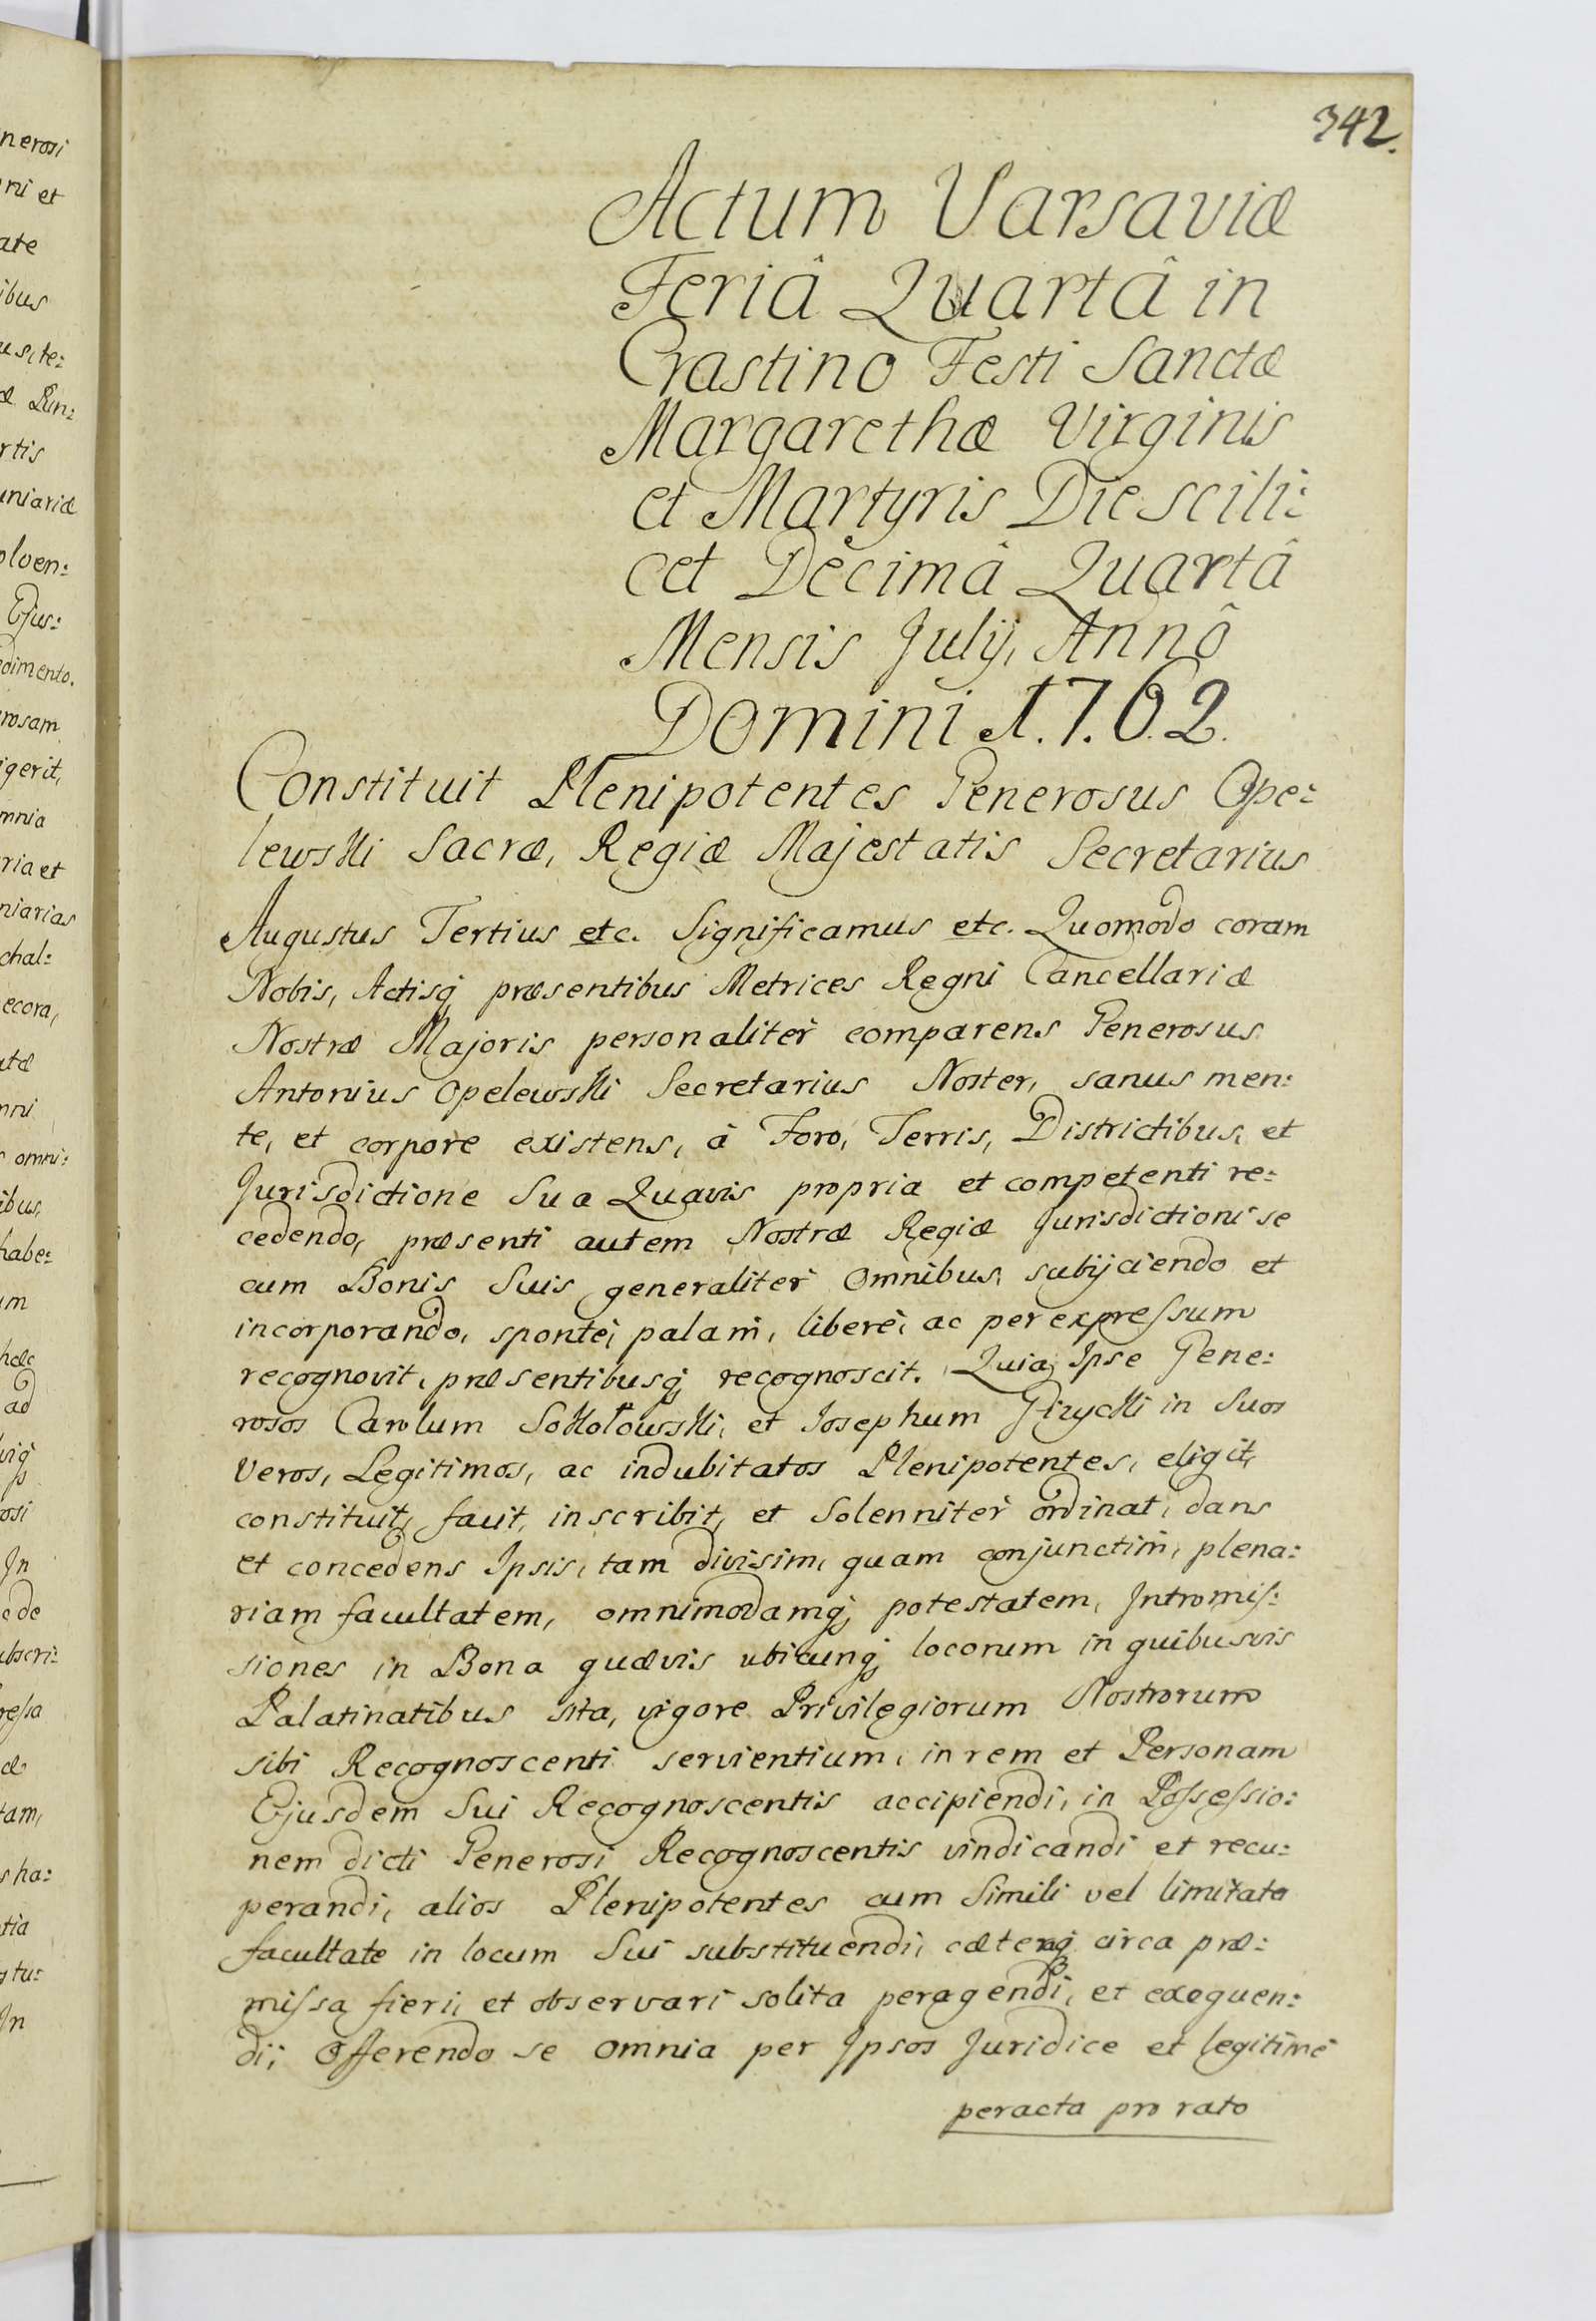 nerosi
ni et
ate
ibus
usite:
æ Pun:
rtis
uniariæ
olven:
Ejus:
edimento.
rosam
igerit,
mnia
ria et
niarias
chal:
ecora,
atæ
nni
omni:
ibus,
habe:
um
hæc
ad
osi
In
e de
ubscri:
ressa
æ
tam,
s ha:
tia
stu:
In
342.
Actum Varsaviæ
Feriâ Quartâ in
Crastino Festi Sanctæ
Margarethæ Virginis
et Martyris Die scili:
cet Decimâ Quartâ
Mensis Julij, Annô
Domini 1.7.6.2.
Constituit Plenipotentes Generosus Ope:
lewski Sacræ, Regiæ Majestatis Secretarius
Augustus Tertius etc. Significamus etc. Quomodo coram
Nobis, Actisq, præsentibus Metrices Regni Cancellariæ
Nostræ Majoris personalitèr comparens Generosus
Antonius Opelewski Secretarius Noster, sanus men:
te, et corpore existens, à Foro, Terris, Districtibus, et
Jurisdictione Sua Quavis propria et competenti re:
cedendo, præsenti autem Nostræ Regiæ Jurisdictioni se
cum Bonis Suis generalitèr Omnibus, subijciendo et
incorporando, spontè, palàm, liberè, ac per expressum
recognovit, præsentibusq, recognoscit. Quia, Ipse Gene:
rosos Carolum Sokołowski, et Josephum Giżycki in Suos
Veros, Legitimos, ac indubitatos Plenipotentes, eligit,
constituit, facit, inscribit, et Solennitèr ordinat, dans
et concedens Ipsis, tam divisim, quam conjunctìm, plena:
riam facultatem, omnimodamq, potestatem, Intromis:
siones in Bona quævis ubicunq, locorum in quibusvis
Palatinatibus sita, vigore Privilegiorum Nostrorum
sibi Recognoscenti servientium, in rem et Personam
Ejusdem Sui Recognoscentis accipiendi, in Possessio:
nem dicti Generosi Recognoscentis vindicandi et recu:
perandi, alios Plenipotentes cum Simili vel limitata
facultate in locum Sui substituendi, cæteraq, circa præ:
missa fieri, et observari solita peragendi, et exequen:
di; Offerendo se omnia per Ipsos Juridice et legitimè
peracta pro rato